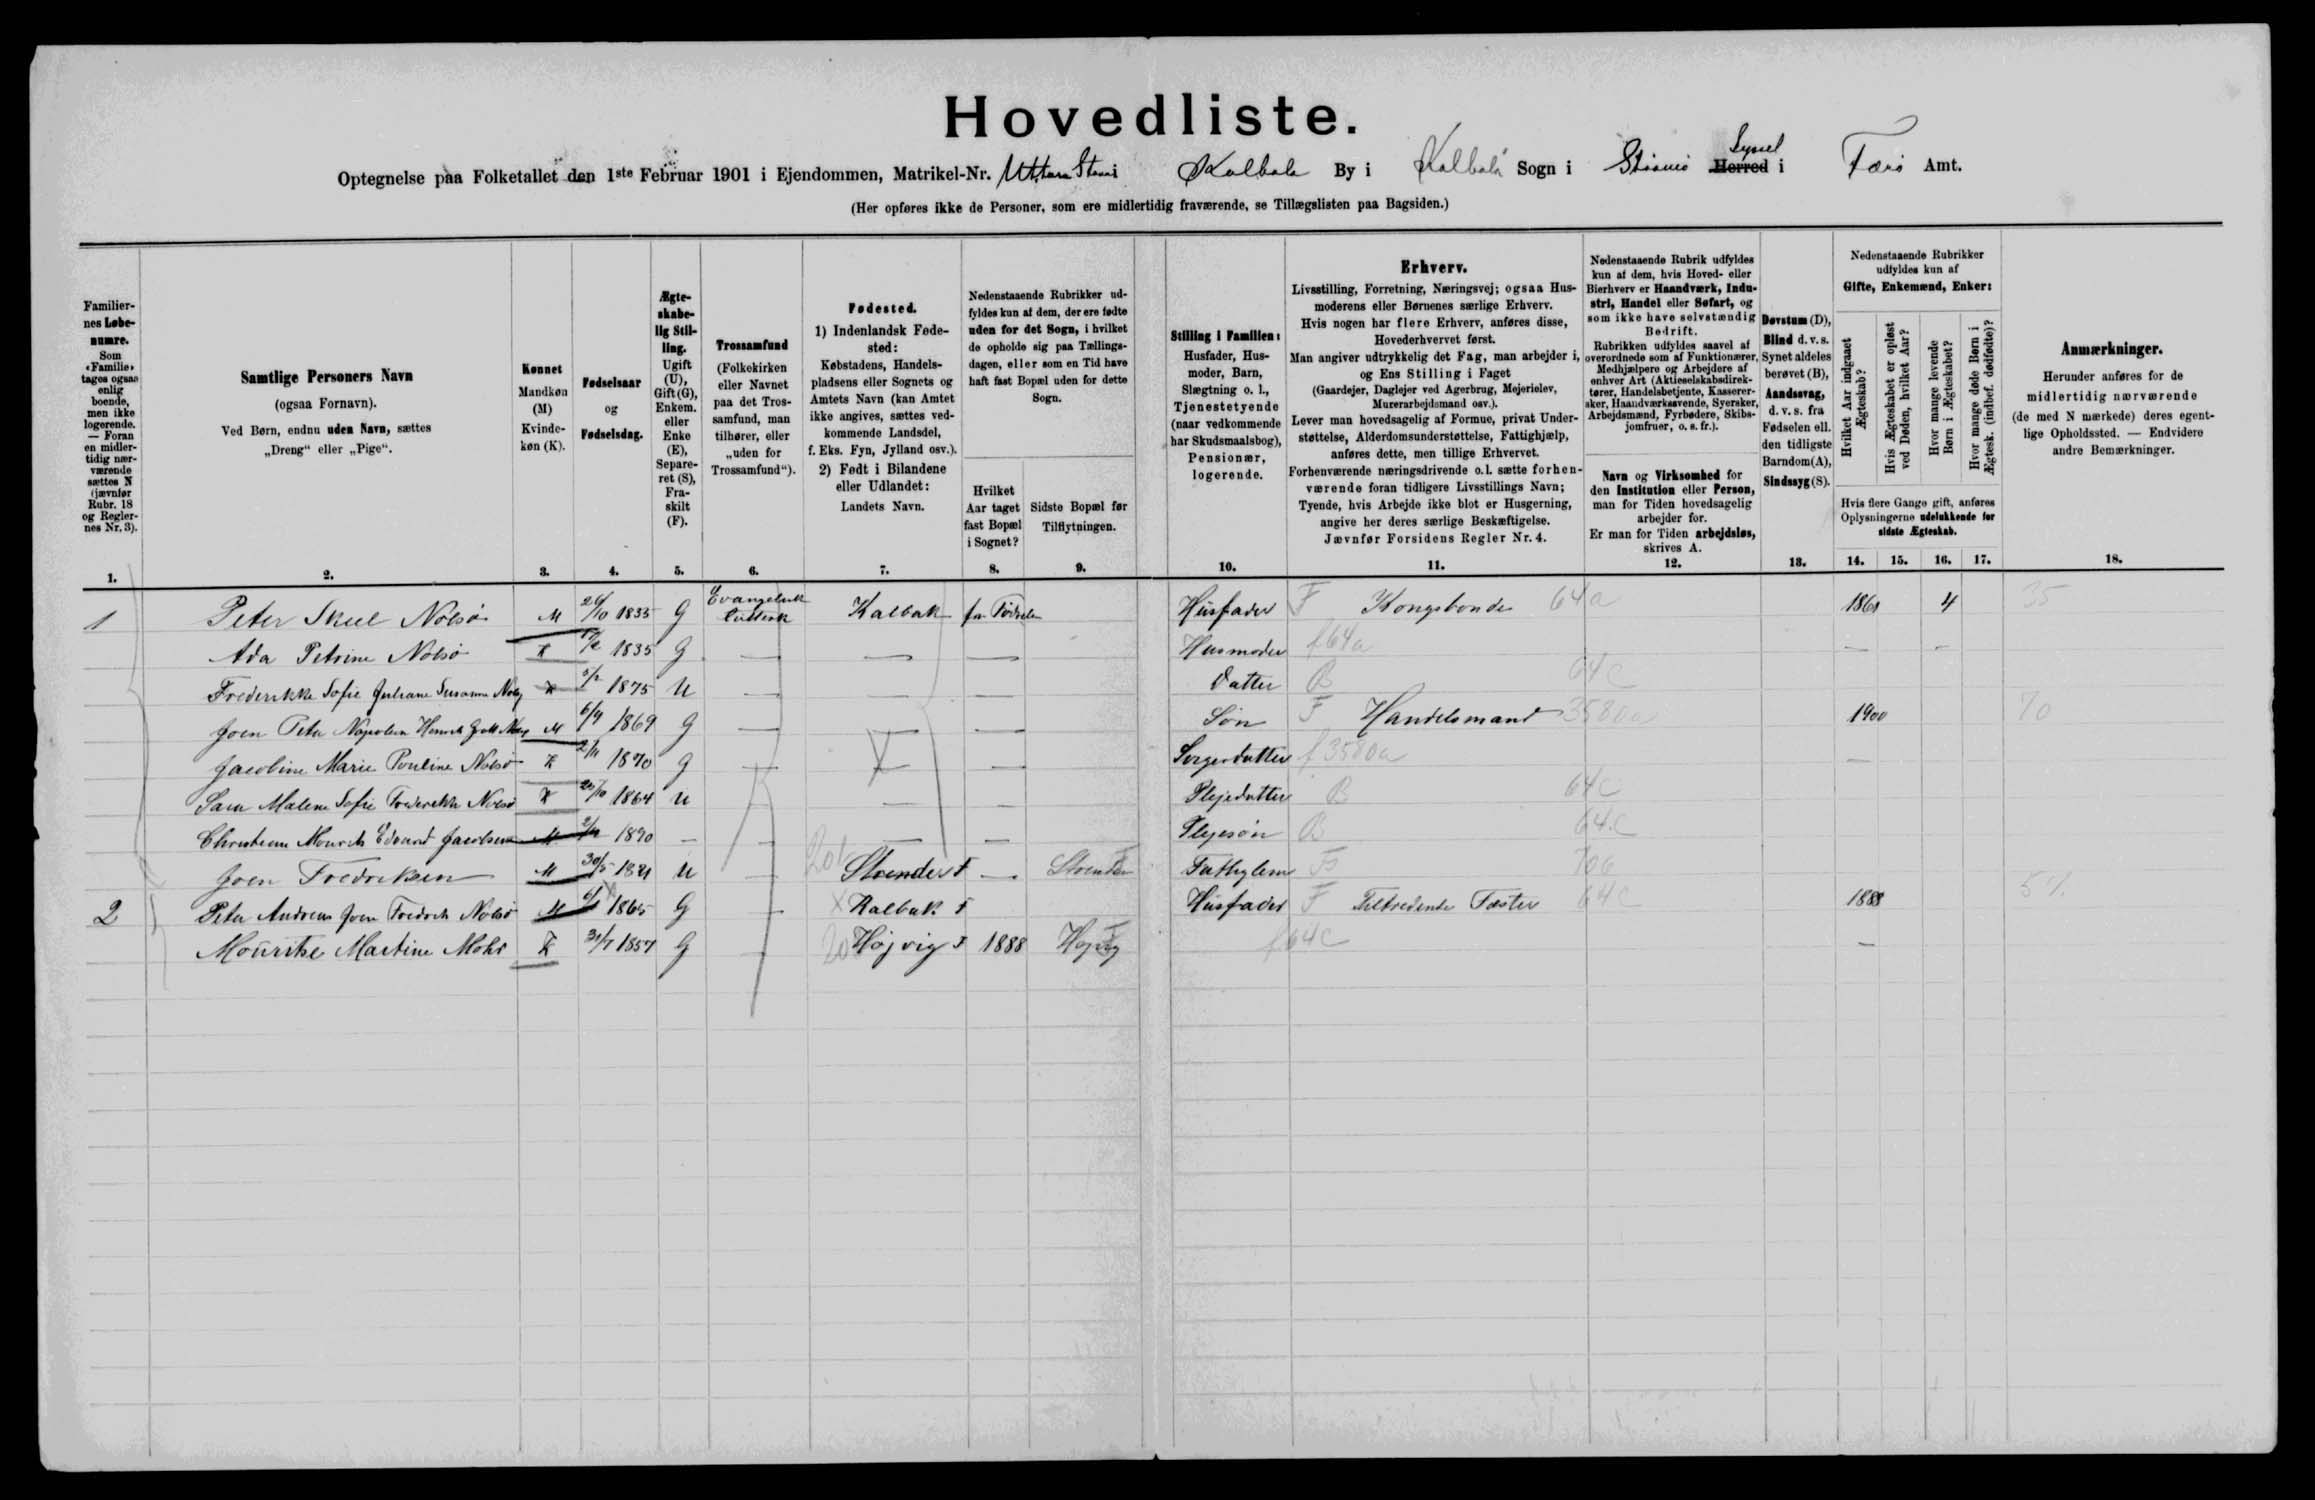 Hovedliste.
Optegnelse paa Folketallet den 1ste Februar 1901 i Ejendommen, Matrikel-Nr. Kalbak By i Kalbak Sogn i Strømø Herred Syssel i Færø Amt.
(Her opføres ikke de Personer, som ere midlertidig fraværende, se Tillægslisten paa Bagsiden.)
Familiernes Løbenumre. Som «Familie» tages ogsaa enlig boende, men ikke logerende. — Foran en midlertidig nærværende sættes N (jævnfør Rubr. 18 og Reglernes Nr. 3).
Samtlige Personers Navn
(ogsaa Fornavn).
Ved Børn, endnu uden Navn, sættes
„Dreng“ eller „Pige“.
Kønnet
Mandkøn (M) Kvindekøn (K).
Fødselsaar og Fødselsdag.
Ægteskabelig Stilling. Ugift (U), Gift (G), Enkem. eller Enke (E), Separeret (S), Fraskilt (F).
Trossamfund
(Folkekirken eller Navnet paa det Trossamfund, man tilhører, eller „uden for Trossamfund“).
Fødested.
1) Indenlandsk Fødested:
Købstadens, Handelspladsens eller Sognets og Amtets Navn (kan Amtet ikke angives, sættes vedkommende Landsdel, f. Eks. Fyn, Jylland osv.).
2) Født i Bilandene eller Udlandet:
Landets Navn.
Nedenstaaende Rubrikker udfyldes kun af dem, der ere fødte uden for det Sogn, i hvilket de opholde sig paa Tællingsdagen, eller som en Tid have haft fast Bopæl uden for dette Sogn.
Hvilket Aar taget fast Bopæl i Sognet?
Sidste Bopæl før Tilflytningen.
Stilling i Familien:
Husfader, Husmoder, Barn, Slægtning o. l., Tjenestetyende (naar vedkommende har Skudsmaalsbog), Pensionær, logerende.
Erhverv.
Livsstilling, Forretning, Næringsvej; ogsaa Husmoderens eller Børnenes særlige Erhverv.
Hvis nogen har flere Erhverv, anføres disse, Hovederhvervet først.
Man angiver udtrykkelig det Fag, man arbejder i, og Ens Stilling i Faget
(Gaardejer, Daglejer ved Agerbrug, Mejerielev, Murerarbejdsmand osv.).
Lever man hovedsagelig af Formue, privat Understøttelse, Alderdomsunderstøttelse, Fattighjælp, anføres dette, men tillige Erhvervet.
Forhenværende næringsdrivende o. l. sætte forhenværende foran tidligere Livsstillings Navn; Tyende, hvis Arbejde ikke blot er Husgerning, angive her deres særlige Beskæftigelse.
Jævnfør Forsidens Regler Nr. 4.
Nedenstaaende Rubrik udfyldes kun af dem, hvis Hoved- eller Bierhverv er Haandværk, Industri, Handel eller Søfart, og som ikke have selvstændig Bedrift.
Rubrikken udfyldes saavel af overordnede som af Funktionærer, Medhjælpere og Arbejdere af enhver Art (Aktieselskabsdirektører, Handelsbetjente, Kasserersker, Haandværkssvende, Syersker, Arbejdsmænd, Fyrbødere, Skibsjomfruer, o. s. fr.).
Navn og Virksomhed for den Institution eller Person, man for Tiden hovedsagelig arbejder for.
Er man for Tiden arbejdsløs, skrives A.
Døvstum (D), Blind d. v. s. Synet aldeles berøvet (B), Aandssvag, d. v. s. fra Fødselen ell. den tidligste Barndom (A), Sindssyg (S).
Nedenstaaende Rubrikker udfyldes kun af Gifte, Enkemænd, Enker:
Hvilket Aar indgaaet Ægteskab?
Hvis Ægteskabet er opløst ved Døden, hvilket Aar?
Hvor mange levende Børn i Ægteskabet?
Hvor mange døde Børn i Ægtesk. (indbef. dødfødte)?
Hvis flere Gange gift, anføres Oplysningerne udelukkende for sidste Ægteskab.
Anmærkninger.
Herunder anføres for de midlertidig nærværende (de med N mærkede) deres egentlige Opholdssted. — Endvidere andre Bemærkninger.
1. 2. 3. 4. 5. 6. 7. 8. 9. 10. 11. 12. 13. 14. 15. 16. 17. 18.
1 Peter Skeel Nolsø M 1835 G Evangelisk Luthersk Kalbak fra Fødselen Husfader F Kongsbonde 64a 4 35
Ada Petrine Nolsø K 1835 G — — — Husmoder f 64a — —
Frederikke Sofie Juliane Susanne K 1875 U — — — Datter B 64c
Joen Peter Napoleon M 6/9 1869 G — — — Søn F Handelsmand 3580a 1900 70
Jacobine Marie Pouline Nolsø K 2/11 1870 G — — — Svigerdatter f 3580a —
Malene Sofie Frederikke Nolsø K 1864 U — — — Plejedatter B 64c
Christian Mourits Edvard Jacobsen M 1890 — — — — Plejesøn B 64c
Joen Fredriksen M 30/5 U — Strender F — Strender Fattiglem 706
2 Peter Andreas Joen Fredrik Nolsø M 1865 G — Kalbak F Husfader F Tiltrædende Fæster 64c 1888
Mouritse Martine Mohr K 1857 G — Højvig F 1888 Højvig f 64c —